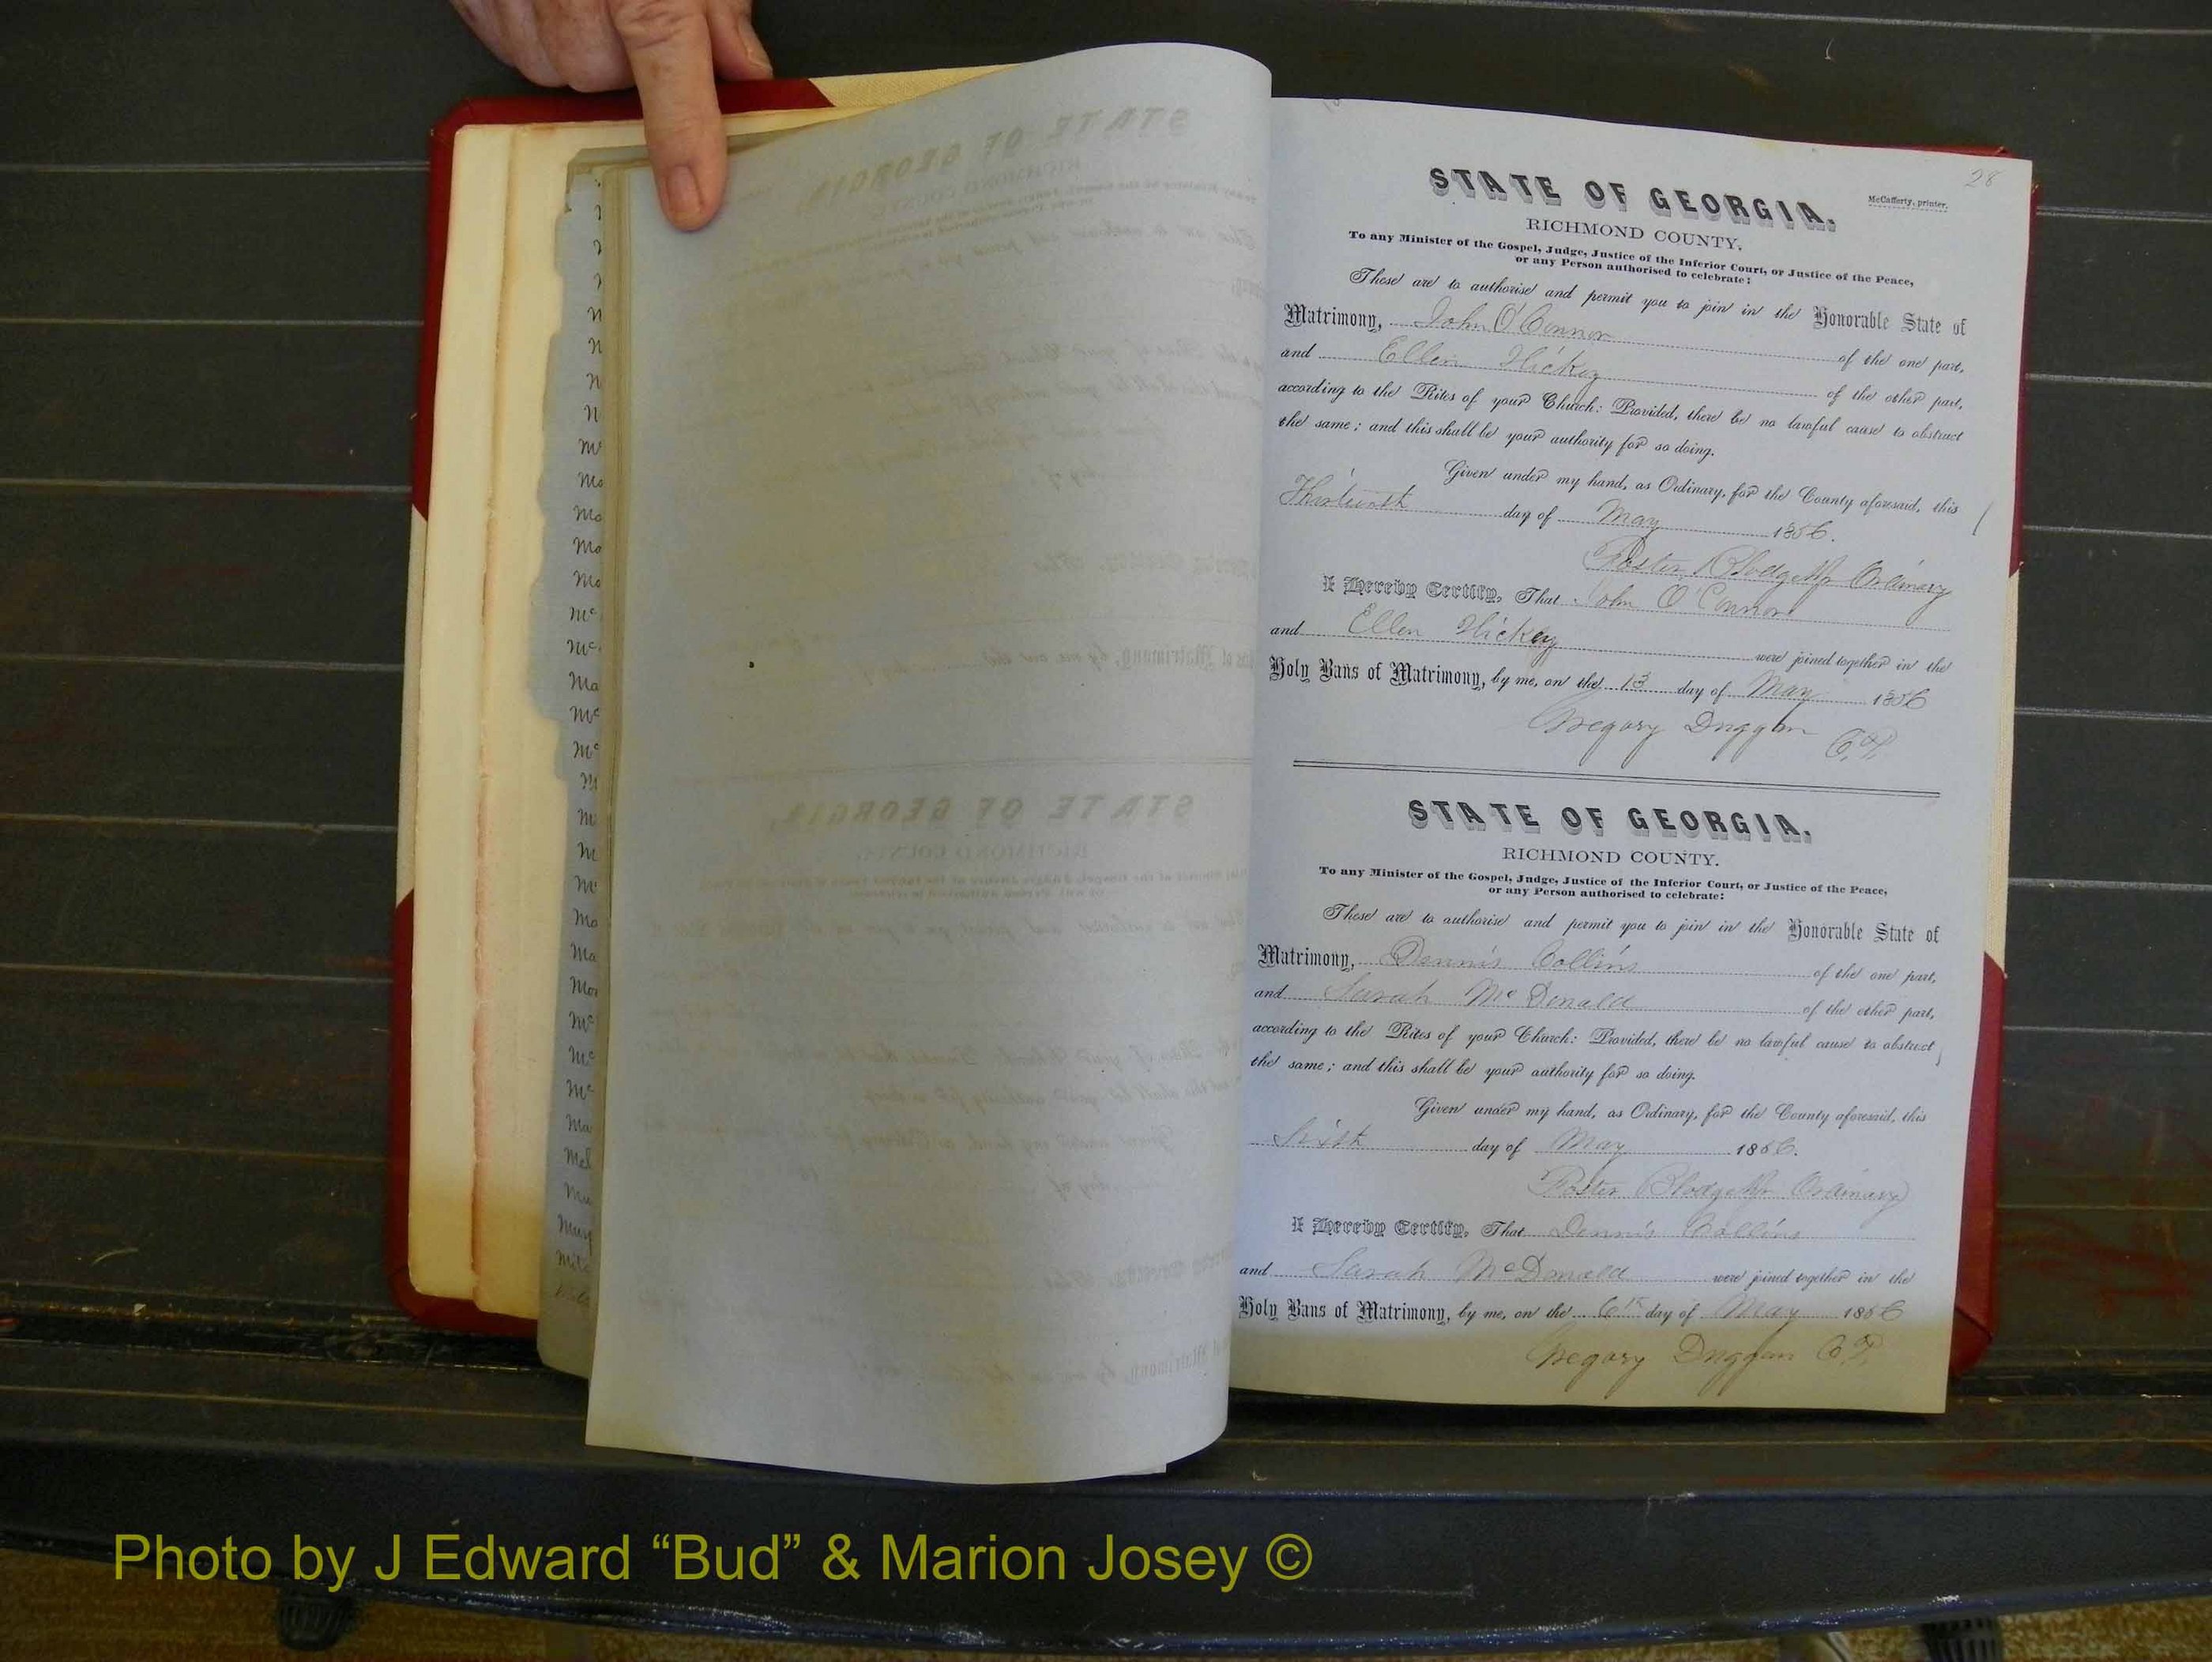 28
STATE OF GEORGIA.
McCafferty, printer.
RICHMOND COUNTY.
To any Minister of the Gospel, Judge, Justice of the Inferior Court, or Justice of the Peace,
or any Person authorised to celebrate:
These are to authorise and permit you to join in the Honorable State of
Matrimony, John O'Connor of the one part,
and Ellen Hickey of the other part,
according to the Rites of your Church: Provided, there be no lawful cause to obstruct
the same; and this shall be your authority for so doing.
Given under my hand, as Ordinary, for the County aforesaid, this
Thirteenth day of May 1856.
Foster Blodget Jr Ordinary
I Hereby Certify, That John O'Connor
and Ellen Hickey were joined together in the
Holy Bans of Matrimony, by me, on the 13 day of May 1856
Gregory Duggan
STATE OF GEORGIA.
RICHMOND COUNTY.
To any Minister of the Gospel, Judge, Justice of the Inferior Court, or Justice of the Peace,
or any Person authorised to celebrate:
These are to authorise and permit you to join in the Honorable State of
Matrimony, Dennis Collins of the one part,
and Sarah McDonald of the other part,
according to the Rites of your Church: Provided, there be no lawful cause to obstruct
the same; and this shall be your authority for so doing.
Given under my hand, as Ordinary, for the County aforesaid, this
Sixth day of May 1856.
Foster Blodget Jr Ordinary
I Hereby Certify, That Dennis Collins
and Sarah McDonald were joined together in the
Holy Bans of Matrimony, by me, on the 6th day of May 1856
Gregory Duggan
Photo by J Edward “Bud” & Marion Josey ©